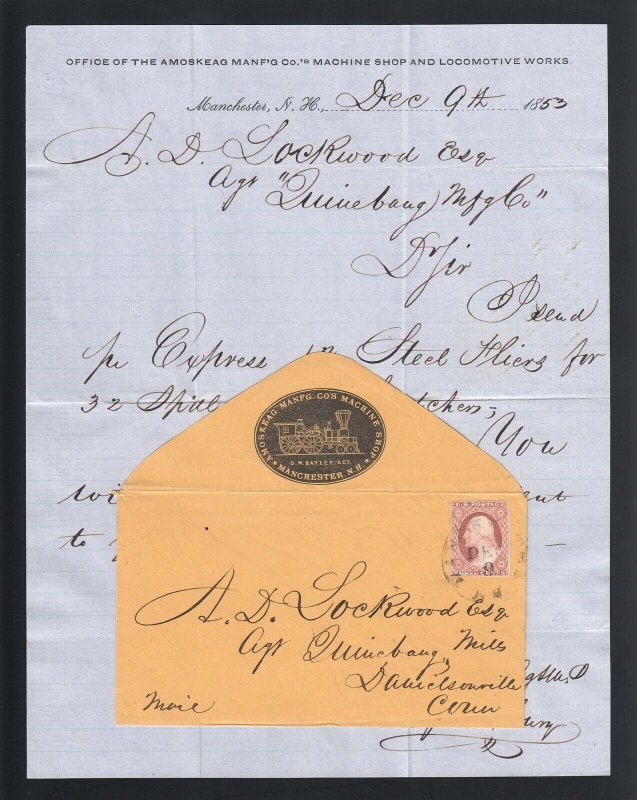 OFFICE OF THE AMOSKEAG MANF'G Co.'s MACHINE SHOP AND LOCOMOTIVE WORKS.
Manchester, N. H., Dec 9th 1853
A. D. Lockwood Esq
Agt "Quinebaug Mfg Co"
Dr Sir
I send
pr Express Steel Fliers for
32
You
to
AMOSKEAG MANFG. CO'S MACHINE SHOP
O.W. BAYLEY, AGT.
MANCHESTER N.H.
U.S. POSTAGE
DE
9
A. D. Lockwood Esq
Agt Quinebaug Mills
Danielsonville
Conn